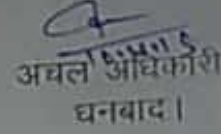 अंचल अधिकारी
धनबाद।